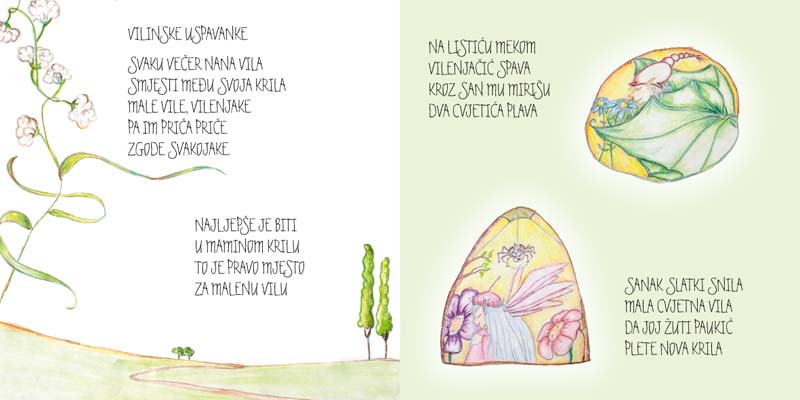 VILINSKE USPAVANKE
SVAKU VEČER NANA VILA
SMJESTI MEĐU SVOJA KRILA
MALE VILE, VILENJAKE
PA IM PRIČA PRIČE
ZGODE SVAKOJAKE.
NAJLJEPŠE JE BITI
U MAMINOM KRILU
TO JE PRAVO MJESTO
ZA MALENU VILU
NA LISTIĆU MEKOM
VILENJAČIĆ SPAVA
KROZ SAN MU MIRIŠU
DVA CVJETIĆA PLAVA
SANAK SLATKI SNILA
MALA CVJETNA VILA
DA JOJ ŽUTI PAUKIĆ
PLETE NOVA KRILA